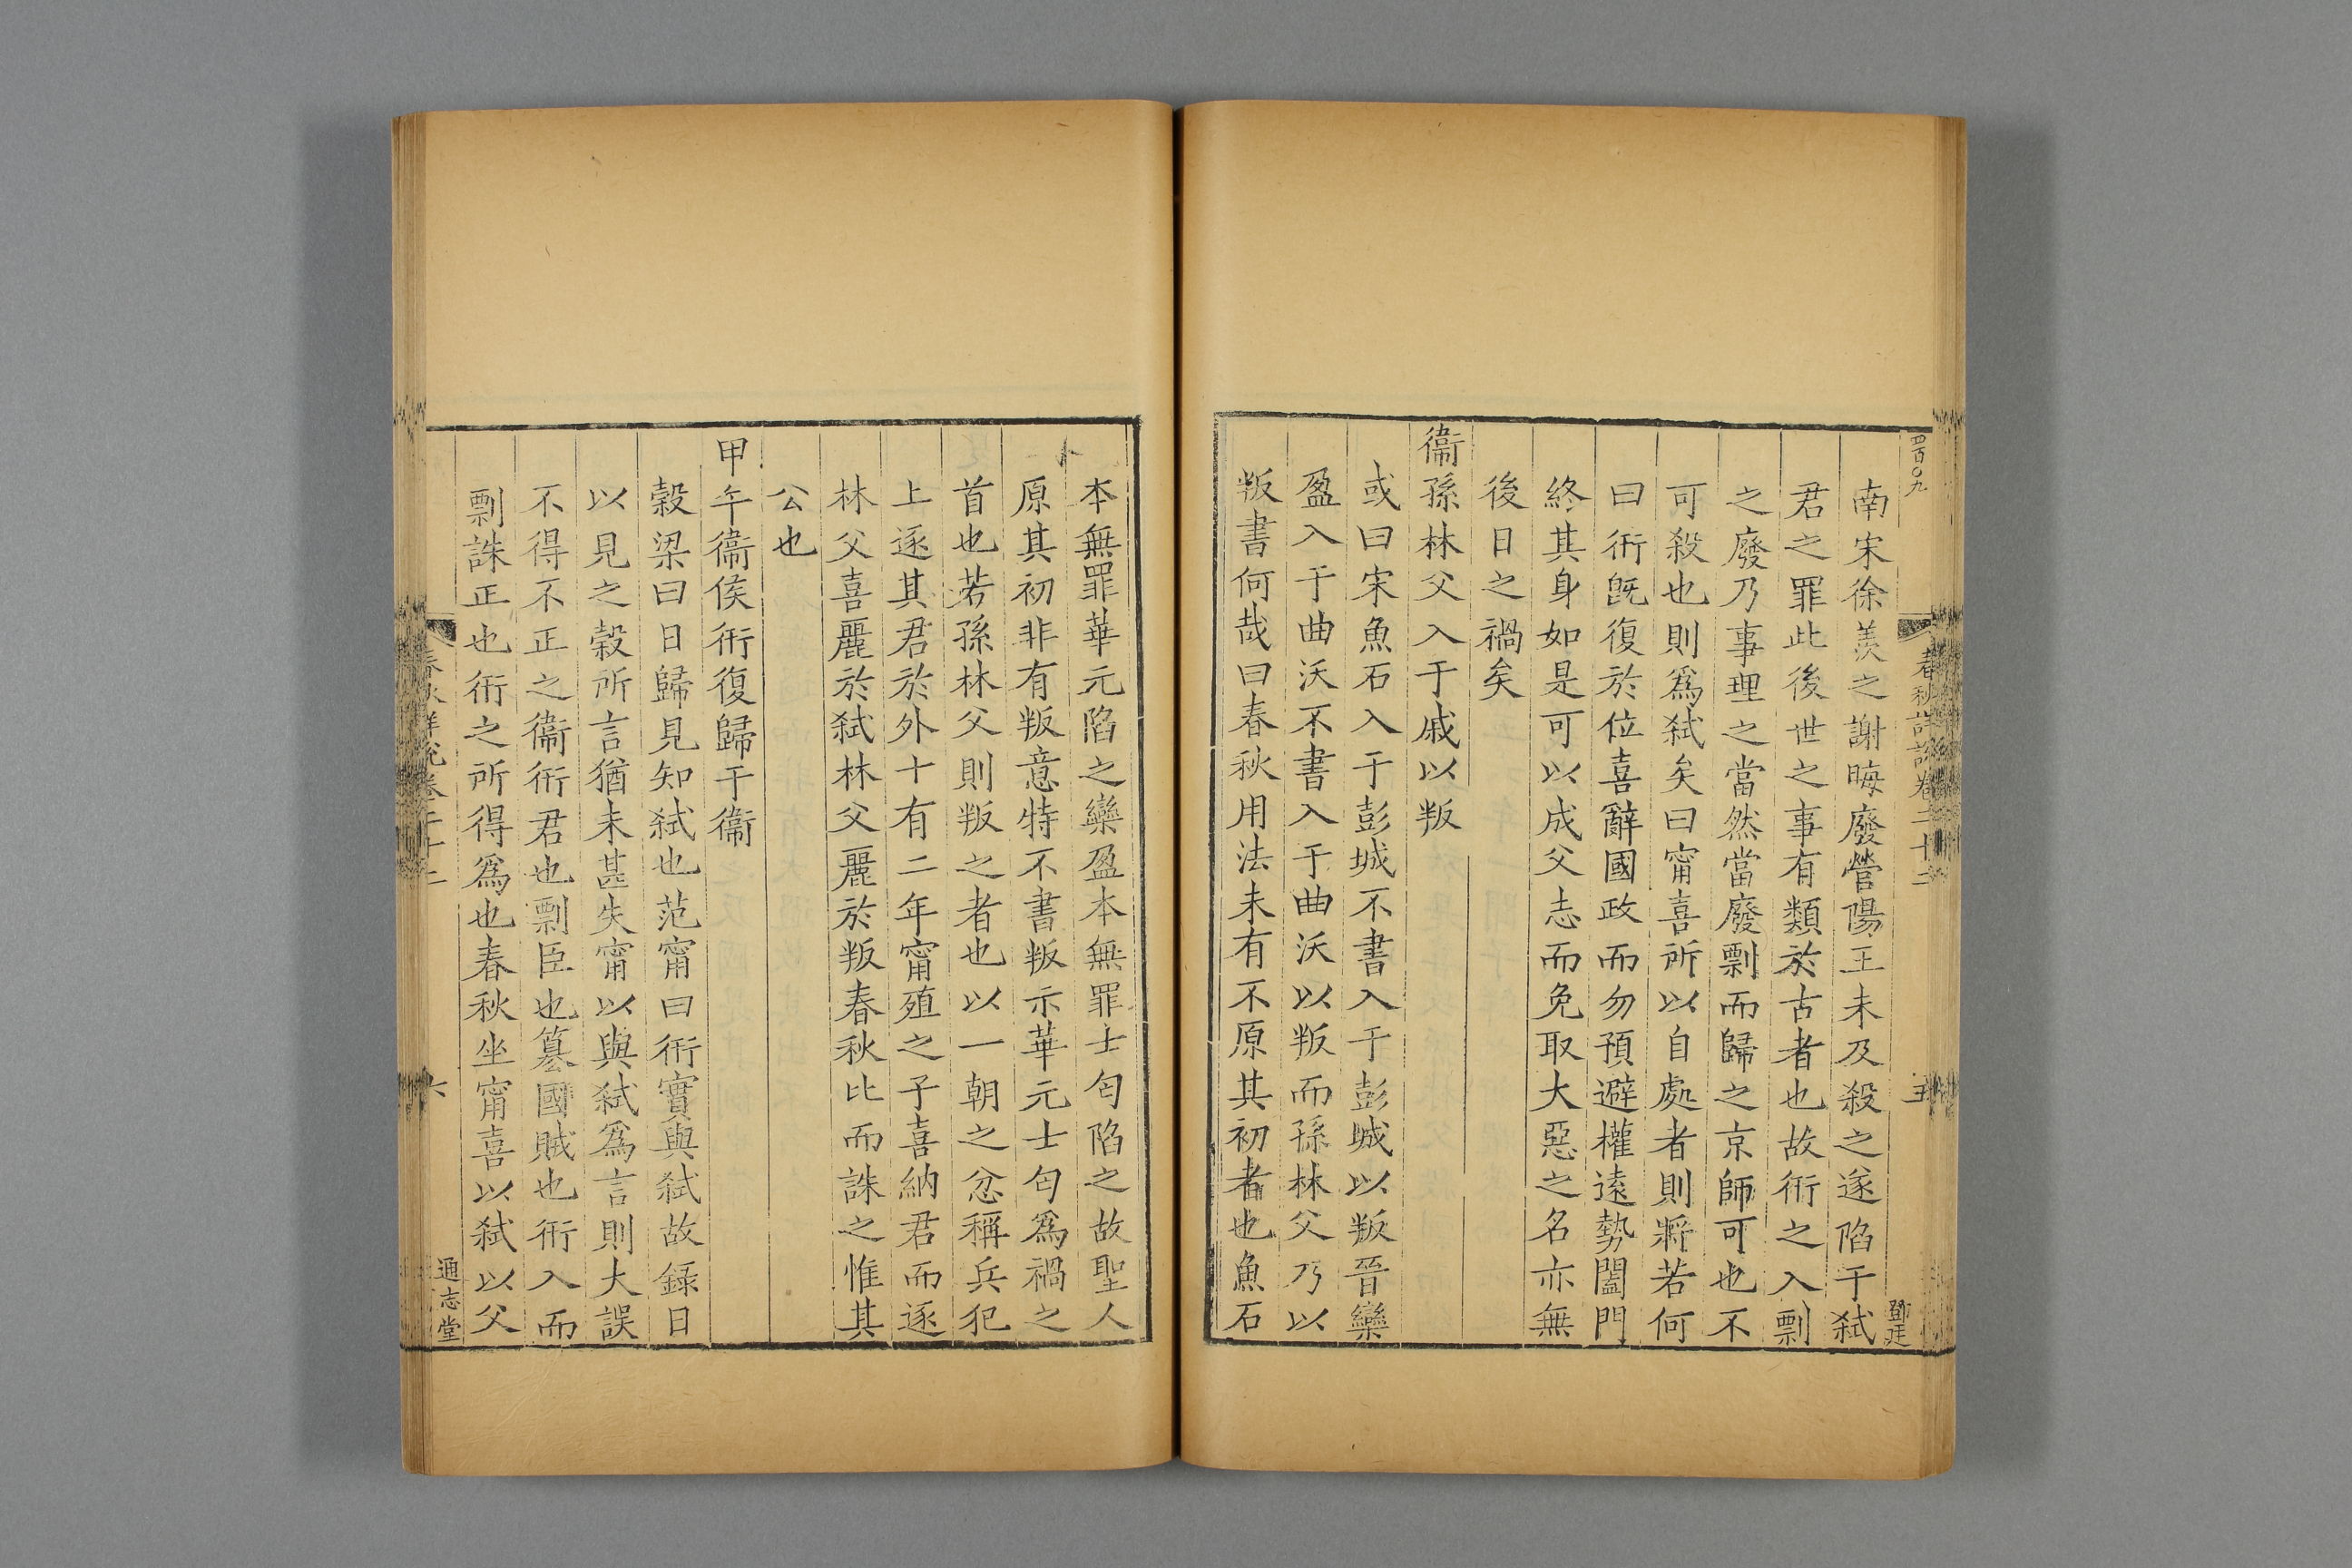 四百〇九
春秋詳說卷二十二
五
鄧廷
南宋徐羨之謝晦廢營陽王未及殺之遂陷于弑
君之罪此後世之事有類於古者也故衎之入剽
之廢乃事理之當然當廢剽而歸之京師可也不
可殺也則爲弑矣曰甯喜所以自處者則將若何
曰衎旣復於位喜辭國政而勿預避權遠勢闔門
終其身如是可以成父志而免取大惡之名亦無
後日之禍矣
衞孫林父入于戚以叛
或曰宋魚石入于彭城不書入于彭城以叛晉欒
盈入于曲沃不書入于曲沃以叛而孫林父乃以
叛書何哉曰春秋用法未有不原其初者也魚石
本無罪華元陷之欒盈本無罪士匄陷之故聖人
原其初非有叛意特不書叛示華元士匄爲禍之
首也若孫林父則叛之者也以一朝之忿稱兵犯
上逐其君於外十有二年甯殖之子喜納君而逐
林父喜麗於弑林父麗於叛春秋比而誅之惟其
公也
甲午衞侯衎復歸于衞
穀梁曰日歸見知弑也范甯曰衎實與弑故錄日
以見之穀所言猶未甚失甯以與弑爲言則大誤
不得不正之衞衎君也剽臣也簒國賊也衎入而
剽誅正也衎之所得爲也春秋坐甯喜以弑以父
春秋詳說卷二十二
六
通志堂